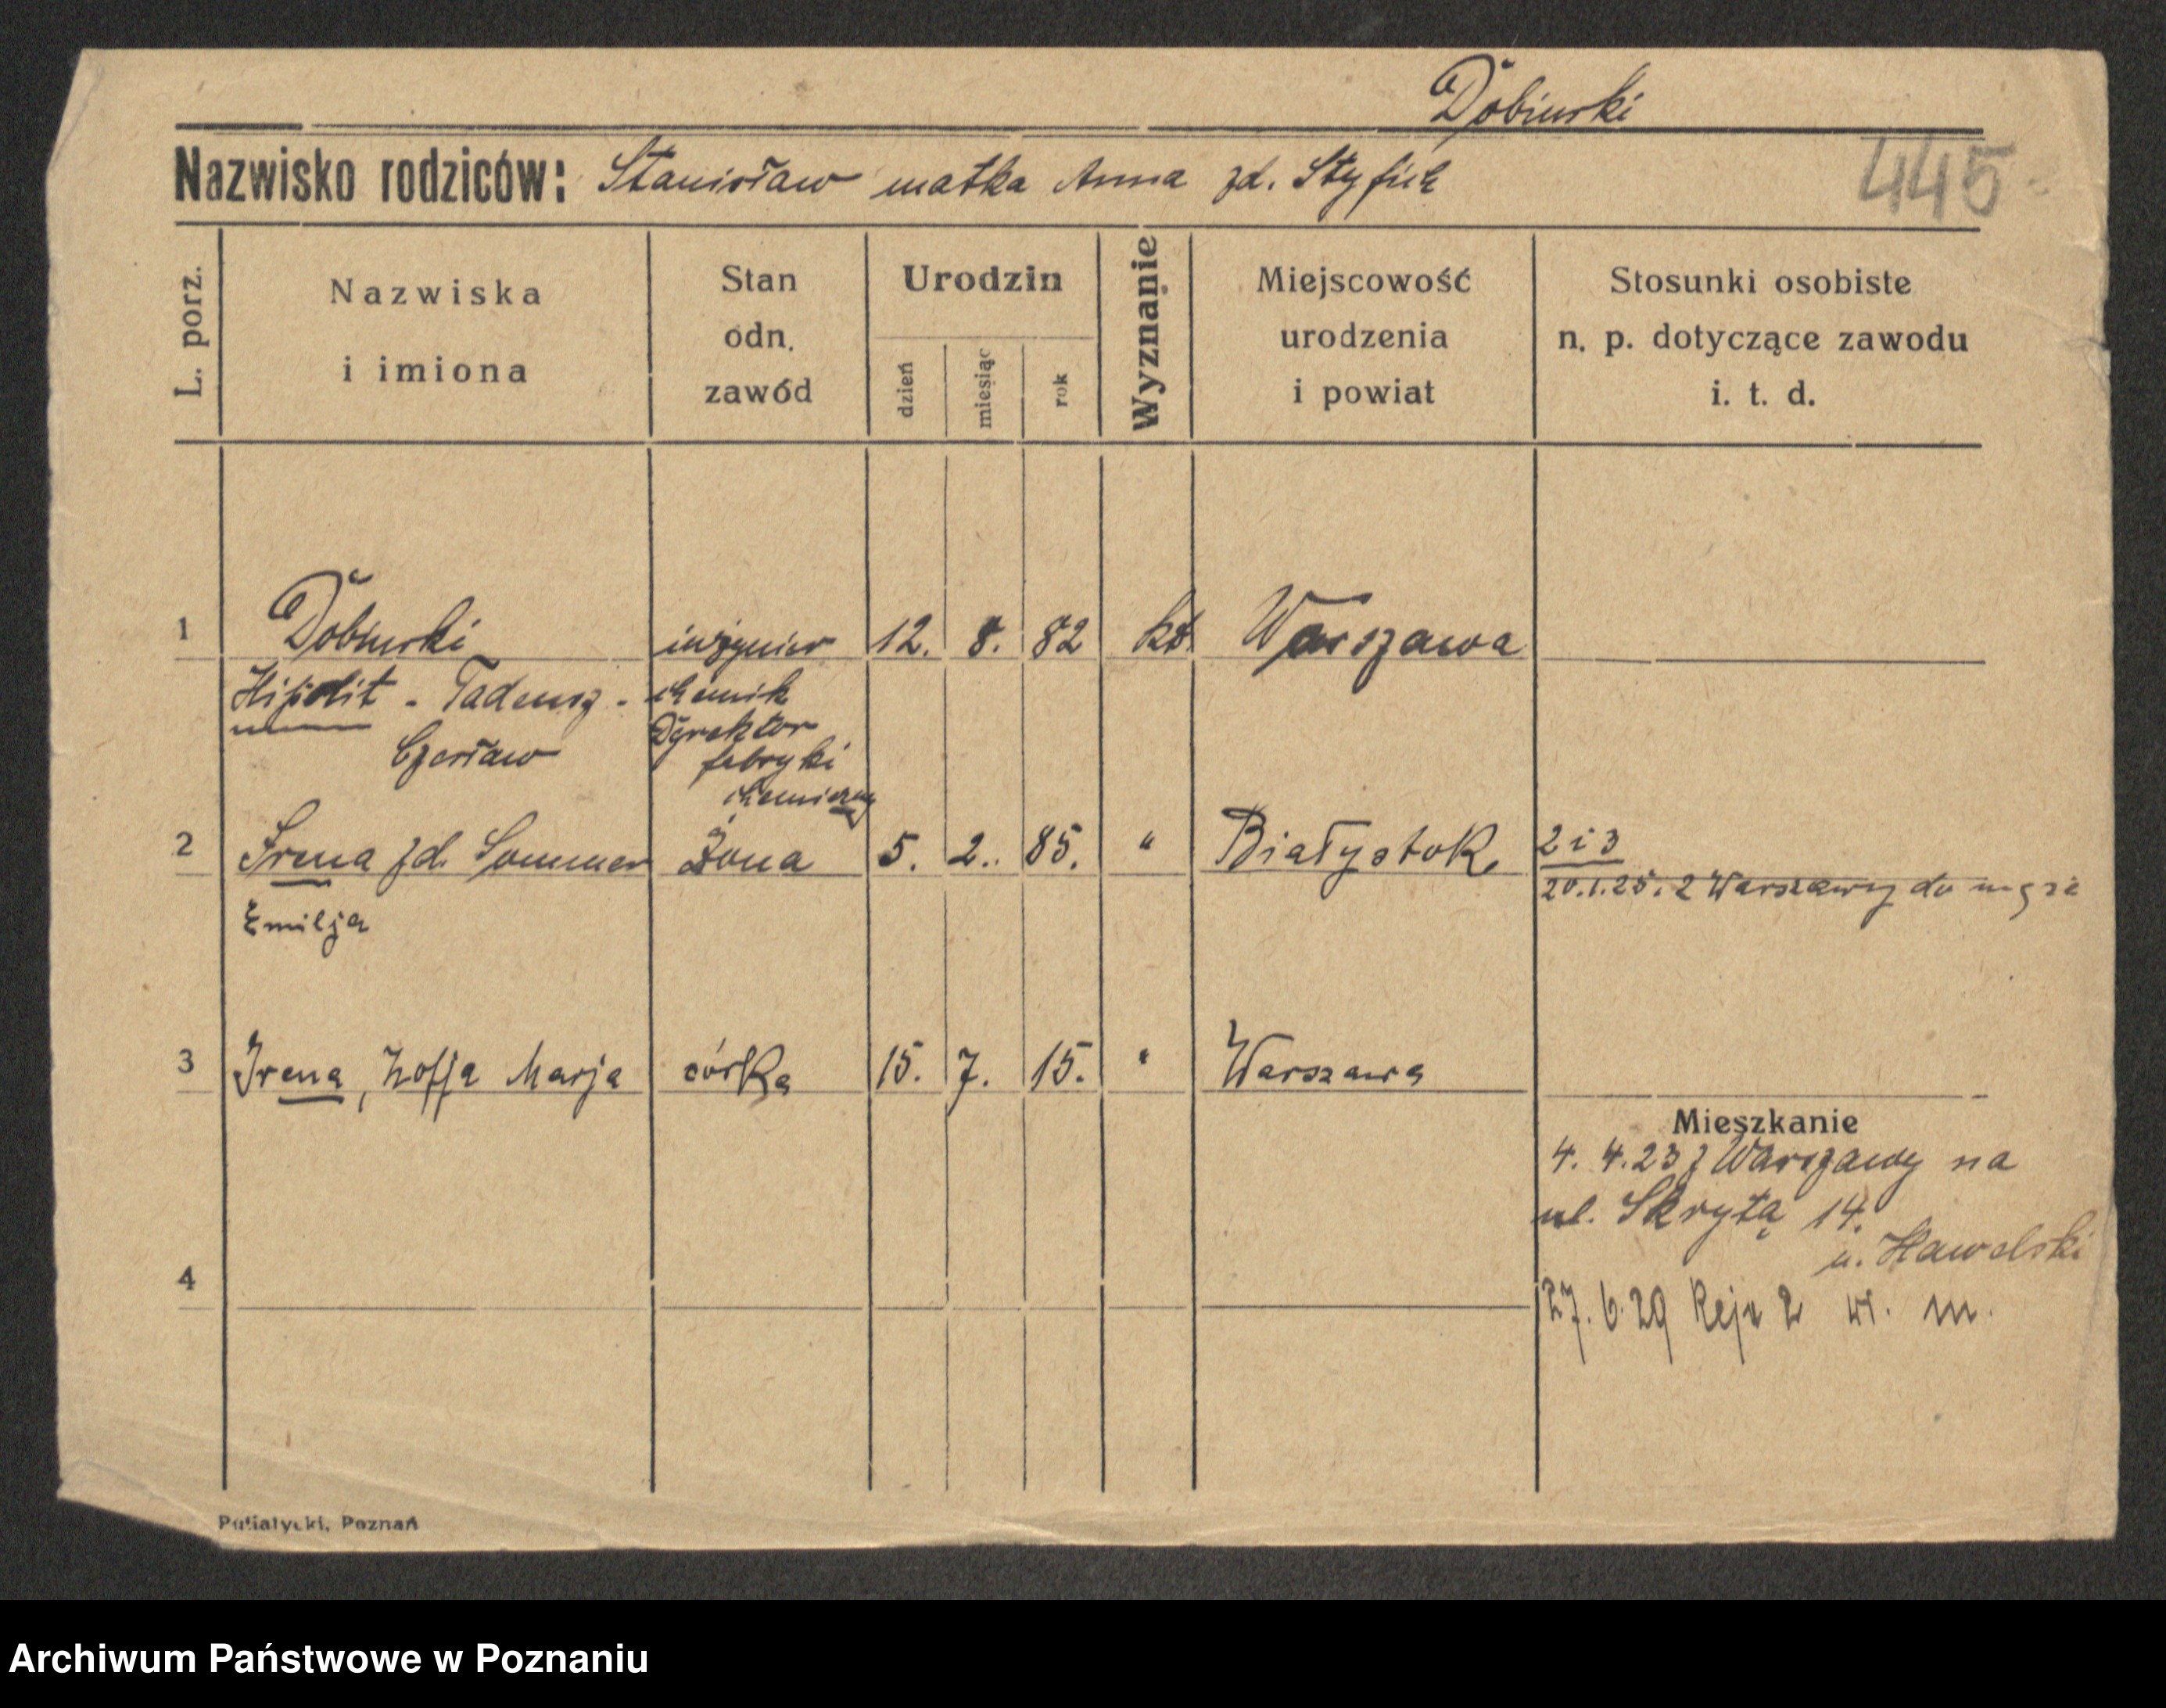 Dobiński
Nazwisko rodziców: Stanisław matka Anna zd. Styfich
445
L. porz.
Nazwiska
i imiona
Stan
odn.
zawód
Urodzin
dzień
miesiąc
rok
Wyznanie
Miejscowość
urodzenia
i powiat
Stosunki osobiste
n. p. dotyczące zawodu
i. t. d.
1 Dobiński inżynier 12. 8. 82 kt Warszawa
Hipolit - Tadeusz - chemik
Dyrektor
Czesław fabryki
chemiczn
2 Irena zd. Sommer żona 5. 2. 85. " Białystok, 2 i 3
20.1.25. z Warszawy do męża
Emilja
3 Irena, Zofja Marja córka 15. 7. 15. " Warszawa
Mieszkanie
4. 4.23 z Warszawy na
ul. Skrytą 14.
u. Hawelski
4
27.6.29 Reja 2 wł. m.
Putiatycki, Poznań
Archiwum Państwowe w Poznaniu